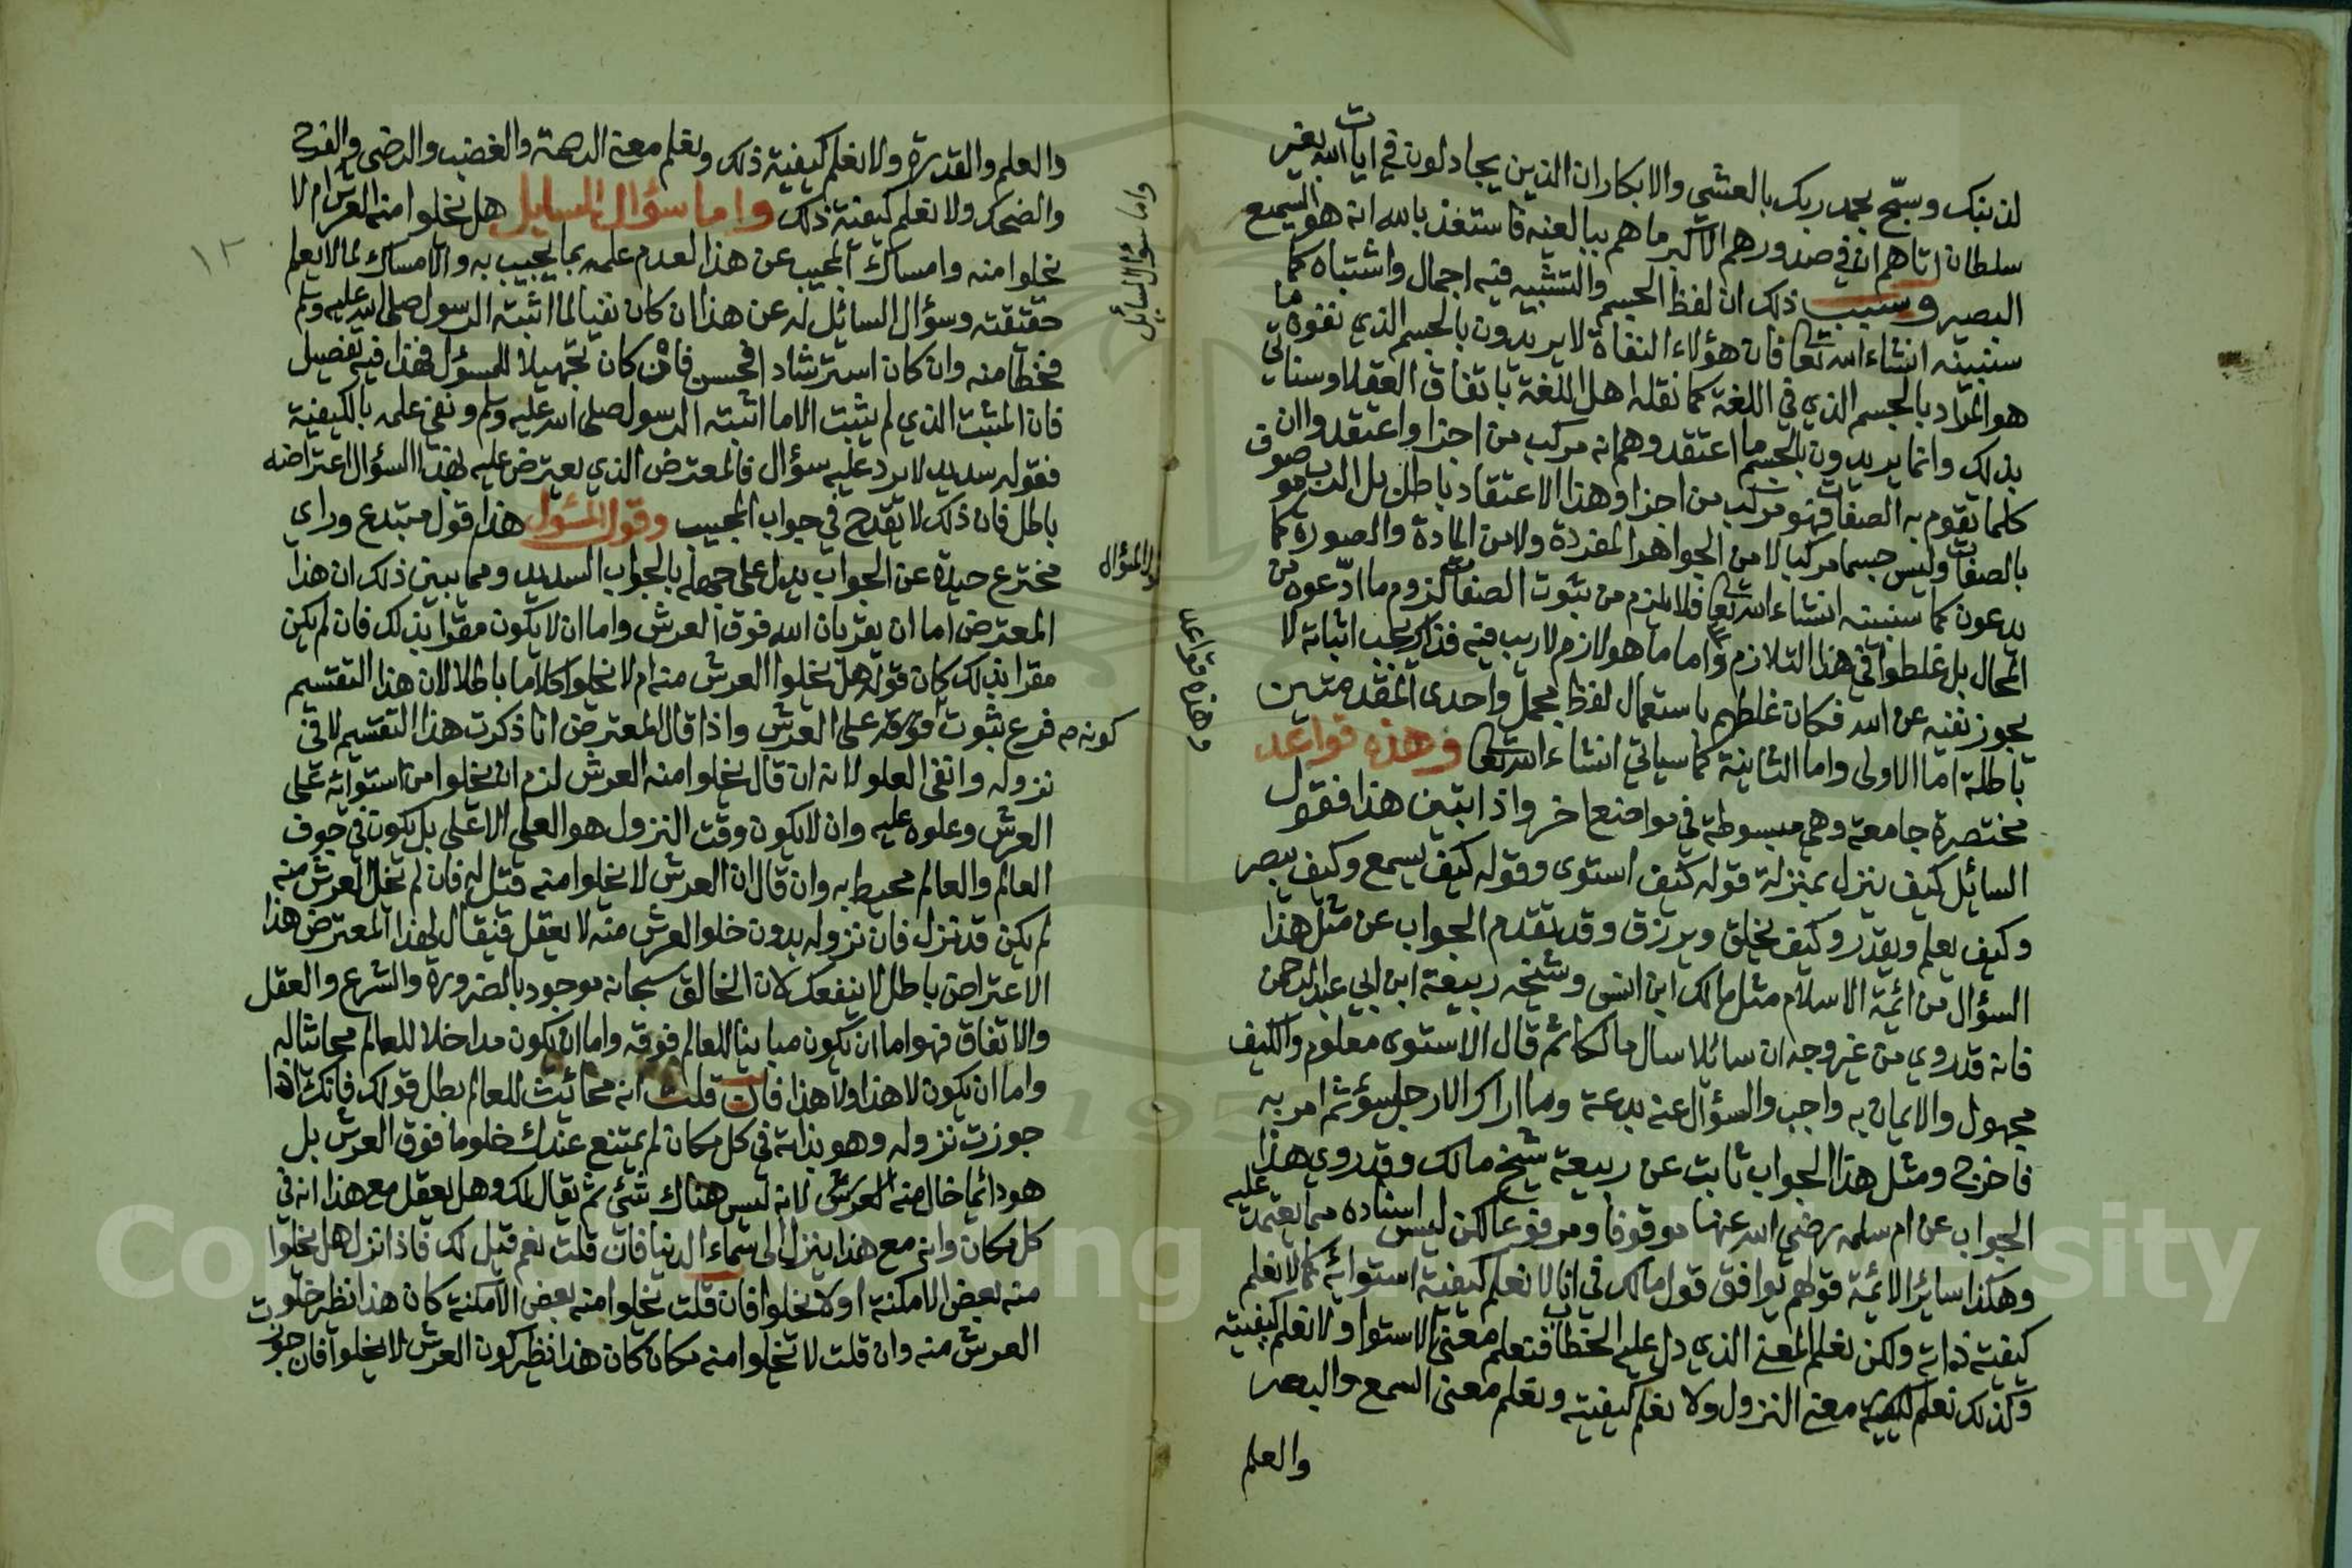 لذنبك وسبّح بحمد ربك بالعشي والابكار ان الذين يجادلون في ايات الله بغير
سلطان اتاهم ان في صدورهم الا كبر ما هم ببالغيه فاستعذ بالله انه هو السميع
البصير وسبب ذلك ان لفظ الجسم والتشبيه فيه اجمال واشتباه كما
سنبينه انشاء الله تعا فان هؤلاء النفاة لا يريدون بالجسم الذي نفوه ما
هو المراد بالجسم الذي في اللغة كما نقله اهل اللغة باتفاق العقلا وسناتي
بذلك وانما يريدون بالجسم ما اعتقدوه انه مركب من اجزا واعتقدوا ان
كلما تقوم به الصفات فهو مركب من اجزا وهذا الاعتقاد باطل بل الرب موصوف
بالصفات وليس جسما مركبا لا من الجواهر المفردة ولا من المادة والصورة كما
يدعون كما سنبينه انشاء الله تعا فلا يلزم من ثبوت الصفات لزوم ما ادّعوه من
المحال بل غلطوا في هذا التلازم واما ما هو لازم لا ريب فيه فذلك يجب اثباته لا
يجوز نفيه عن الله فكان غلطهم باستعمال لفظ مجمل واحدى المقدمتين
باطلة اما الاولى واما الثانية كما سياتي انشاء الله تعا وهذه قواعد
مختصرة جامعة وهي مبسوطة في مواضع اخر واذا تبين هذا فقول
السائل كيف ينزل بمنزلة قوله كيف استوى وقوله كيف يسمع وكيف يبصر
وكيف يعلم ويقدر وكيف يخلق ويرزق وقد تقدم الجواب عن مثل هذا
السؤال من ائمة الاسلام مثل مالك ابن انس وشيخه ربيعة ابن ابي عبد الرحمن
فانه قد روي من غير وجه ان سائلا سال مالكا ثم قال الاستوى معلوم والكيف
مجهول والايمان به واجب والسؤال عنه بدعة وما اراك الا رجل سؤ ثم امر به
فاخرج ومثل هذا الجواب ثابت عن ربيعة شيخ مالك وقد روي هذا
الجواب عن ام سلمه رضي الله عنها موقوفا ومرفوعا لكن ليس اسناده مما يعتمد عليه
وهكذا سائر الائمة قولهم يوافق قول مالك في انا لا نعلم كيفية استوائه كما لا نعلم
كيفية ذاته ولكن نعلم المعنى الذي دل عليه الخطاب فنعلم معنى الاستوا ولا نعلم كيفيته
وكذلك نعلم معنى النزول ولا نعلم كيفيته ونعلم معنى السمع والبصر
والعلم
وهذه قواعد
والعلم والقدرة ولا نعلم كيفية ذلك ونعلم معنى الرحمة والغضب والرضى والفرح
والضحك ولا نعلم كيفية ذلك واما سؤال السايل هل يخلوا منه العرش ام لا
يخلوا منه وامساك المجيب عن هذا لعدم علمه بما يجيب به والامساك لما لا يعلم
حقيقته وسؤال السائل له عن هذا ان كان نفيا لما اثبته الرسول صلى الله عليه وسلم
فخطا منه وان كان استرشادا فحسن فان كان تجهيلا للمسؤل فهذا فيه تفصيل
فان المثبت الذي لم يثبت الا ما اثبته الرسول صلى الله عليه وسلم ونفى علمه بالكيفية
فقوله سديد لا يرد عليه سؤال فالمعترض الذي يعترض عليه بهذا السؤال اعتراضه
باطل فان ذلك لا يقدح في جواب المجيب وقول المسؤل هذا قول مبتدع وراي
مخترع حيدة عن الجواب يدل على جهله بالجواب السديد ومما يبين ذلك ان هذا
المعترض اما ان يقر بان الله فوق العرش واما ان لا يكون مقرا بذلك فان لم يكن
مقرا بذلك كان قوله هل يخلوا العرش منه ام لا يخلوا كلاما باطلا لان هذا التقسيم
فرع ثبوت فوقه على العرش واذا قال المعترض انا ذكرت هذا التقسيم لانفي
نزوله وانفي العلو لانه ان قال يخلوا منه العرش لزم ان يخلوا من استوائه على
العرش وعلوه عليه وان لا يكون وقت النزول هو العلي الاعلى بل يكون في جوف
العالم والعالم محيط به وان قال ان العرش لا يخلوا منه قيل له فان لم يخل العرش منه
لم يكن قد نزل فان نزوله بدون خلو العرش منه لا يعقل فيقال لهذا المعترض هذا
الاعتراض باطل لا ينفعك لان الخالق سبحانه موجود بالضرورة والشرع والعقل
والاتفاق فهو اما ان يكون مباينا للعالم فوقه واما ان يكون مداخلا للعالم محايثا له
واما ان يكون لا هذا ولا هذا فان قلت انه محايث للعالم بطل قولك فانك اذا
جوزت نزوله وهو بذاته في كل مكان لم يمتنع عندك خلو ما فوق العرش بل
هو دائما خال منه العرش لانه ليس هناك شئ ثم يقال لك وهل يعقل مع هذا انه في
كل مكان وانه مع هذا ينزل الى سماء الدنيا فان قلت نعم قيل لك فاذا نزل هل يخلوا
منه بعض الامكنة او لا يخلوا فان قلت يخلوا منه بعض الامكنة كان هذا نظير خلو
العرش منه وان قلت لا يخلوا منه مكان كان هذا نظير كون العرش لا يخلوا فان جوزت
واما سؤال السائل
كونه
١٢
1957